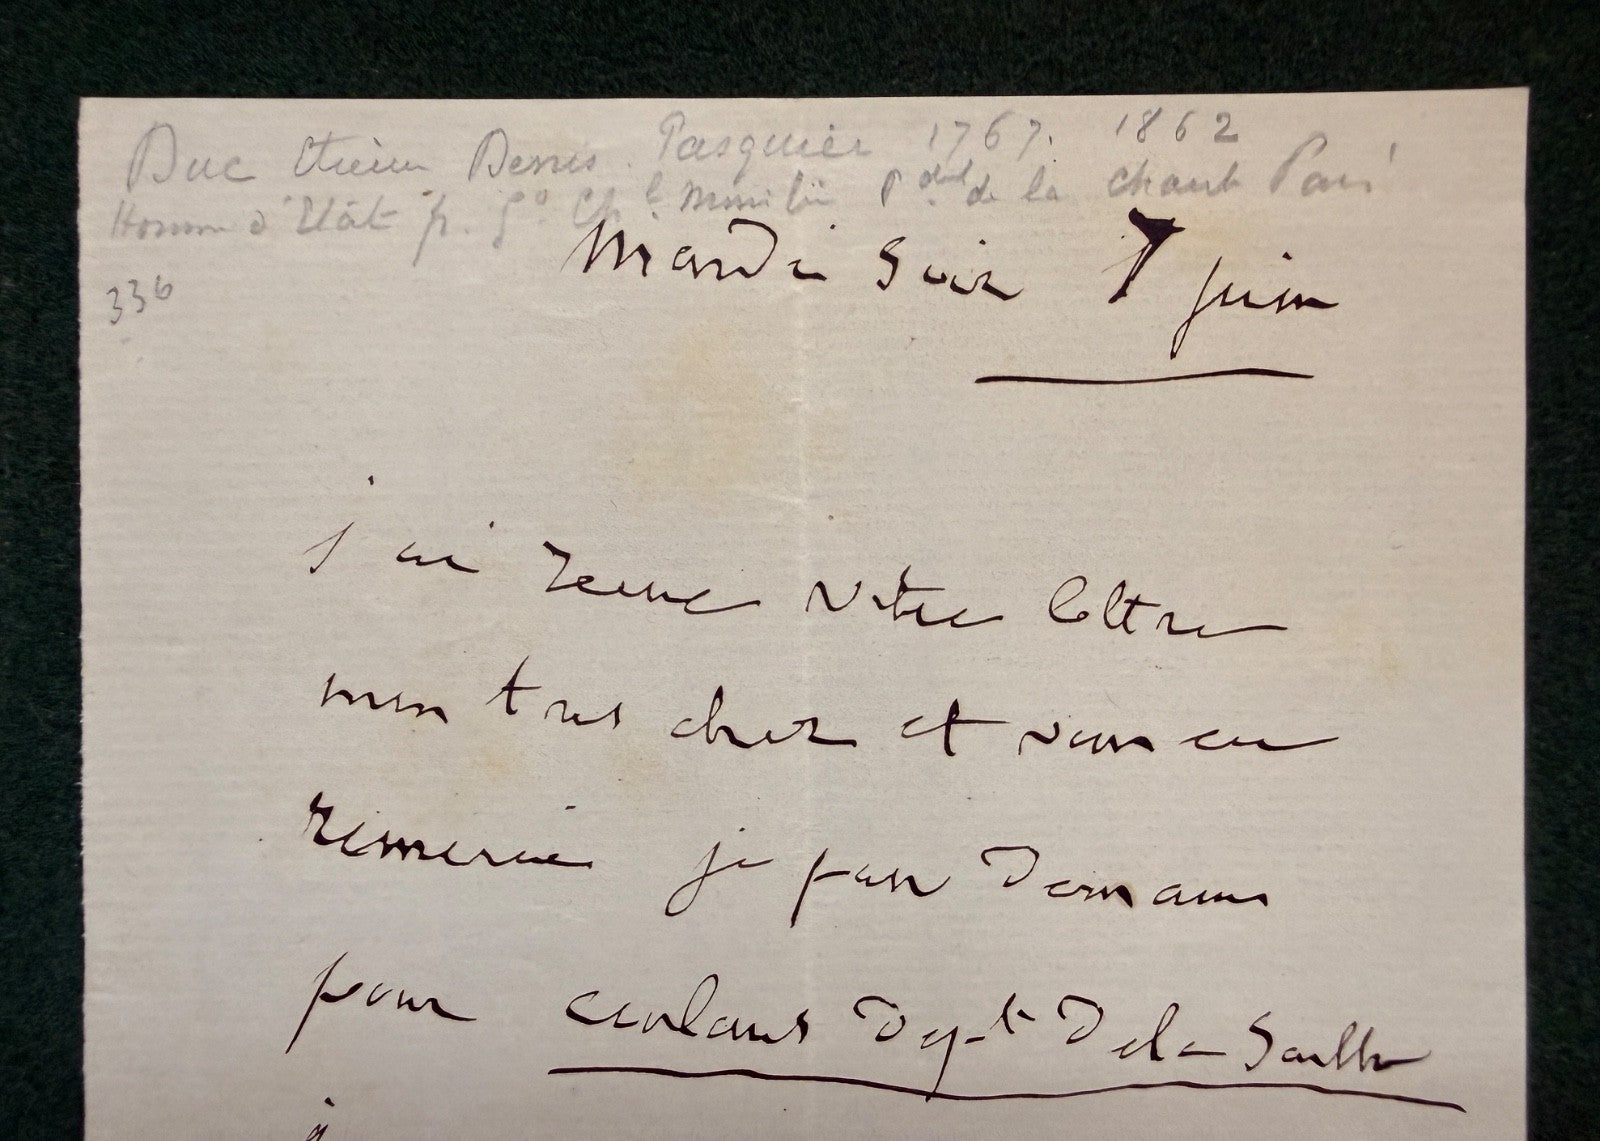 Duc Etienne Denis Pasquier 1767. 1862
Homme d'Etat p. Pdt de la chamb Pairs
336
Mardi Soir 7 juin
j'ai recue votre lettre
mon tres cher et vous en
remercie je pars Demain
pour coulans Dept Dela Sarthe